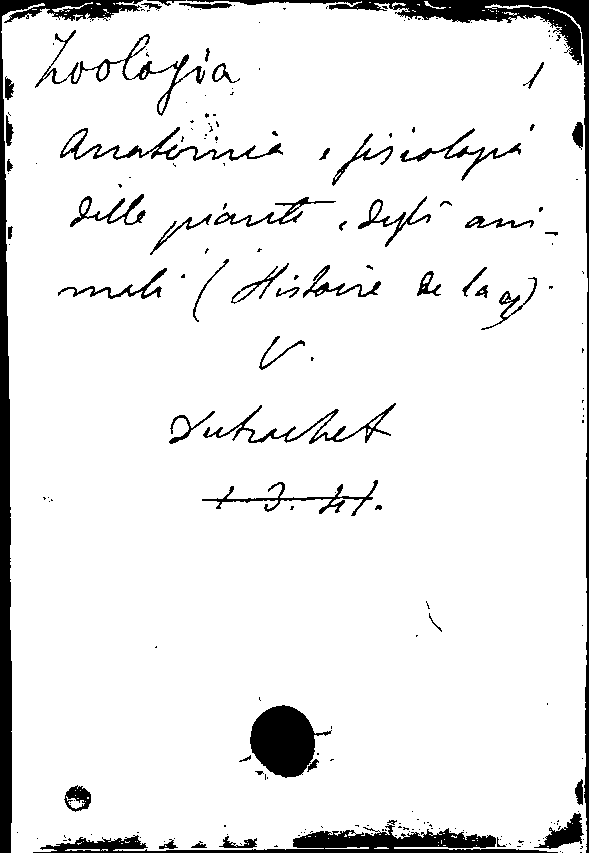 Zoologia 1
Anatomia e fisiologia
delle piante e degli ani-
mali (Histoire de la
V.
Dutrochet
1. 3. 41.